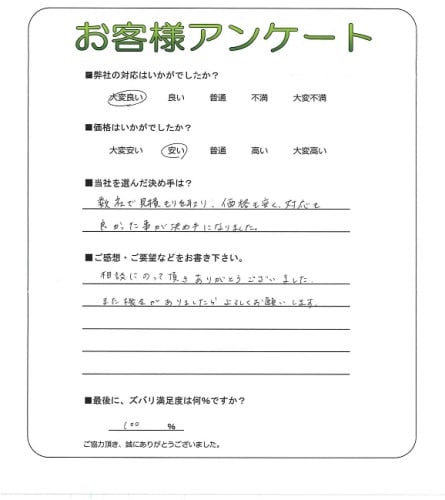 お客様アンケート
■弊社の対応はいかがでしたか？
大変良い 良い 普通 不満 大変不満
■価格はいかがでしたか？
大変安い 安い 普通 高い 大変高い
■当社を選んだ決め手は？
数社で見積もりを取り、価格も安く、対応も
良かった事が決め手になりました。
■ご感想・ご要望などをお書き下さい。
相談にのって頂きありがとうございました。
また機会がありましたらよろしくお願いします。
■最後に、ズバリ満足度は何％ですか？
100 ％
ご協力頂き、誠にありがとうございました。